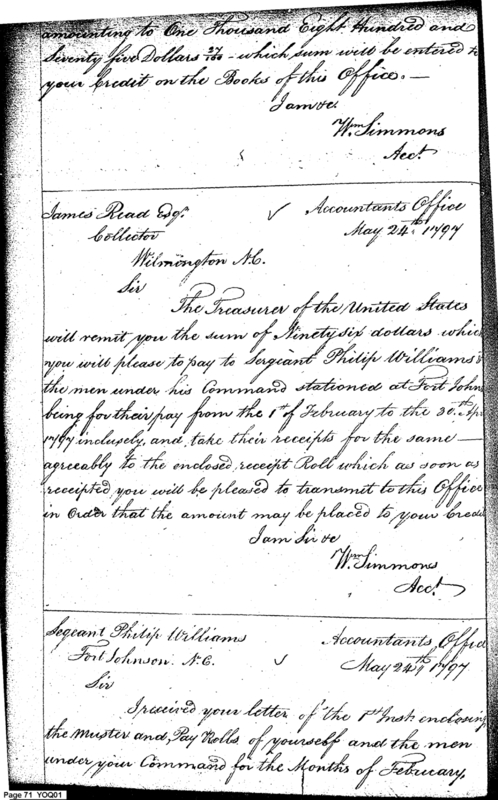 amounting to One Thousand Eight Hundred and
Seventy five Dollars 27/100 - which sum will be entered to
your Credit on the Books of this Office. —
I am &c
Wm. Simmons
Acct.
James Read Esqr. ✓ Accountants Office
Collector May 24th 1797
Wilmington N.C.
Sir
The Treasurer of the United States
will remit you the sum of Ninety six dollars which
you will please to pay to Sergeant Philip Williams &
the men under his Command stationed at Fort Johns
being for their pay from the 1st of February to the 30th Ap
1797 inclusely, and take their receipts for the same —
agreeably to the enclosed receipt Roll which as soon as
receipted you will be pleased to transmit to this Office
in Order that the amount may be placed to your Credit
I am Sir &c
Wm. Simmons
Acct.
Segeant Philip Williams Accountants Office
Fort Johnson N.C. ✓ May 24th 1797
Sir
I received your letter of the 1st Inst. enclosing
the Muster and Pay Rolls of yourself and the men
under your Command for the Months of February,
Page 71 YOQ01